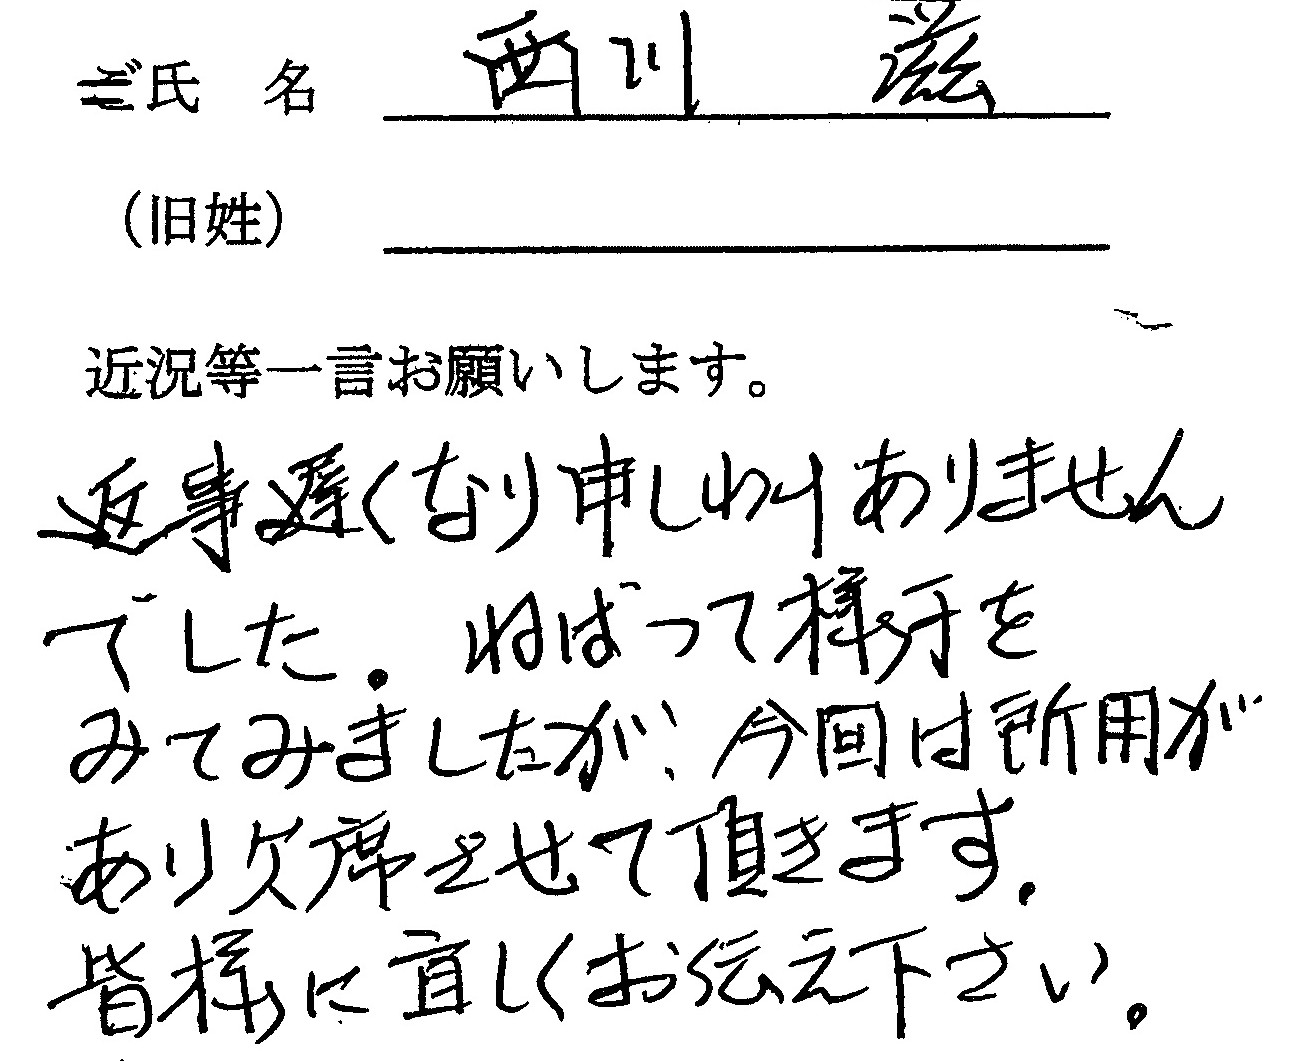 ご氏 名 西川 滋
(旧姓)
近況等一言お願いします。
返事遅くなり申しわけありません
でした。ねばって様子を
みてみましたが、今回は所用が
あり欠席させて頂きます。
皆様に宜しくお伝え下さい。